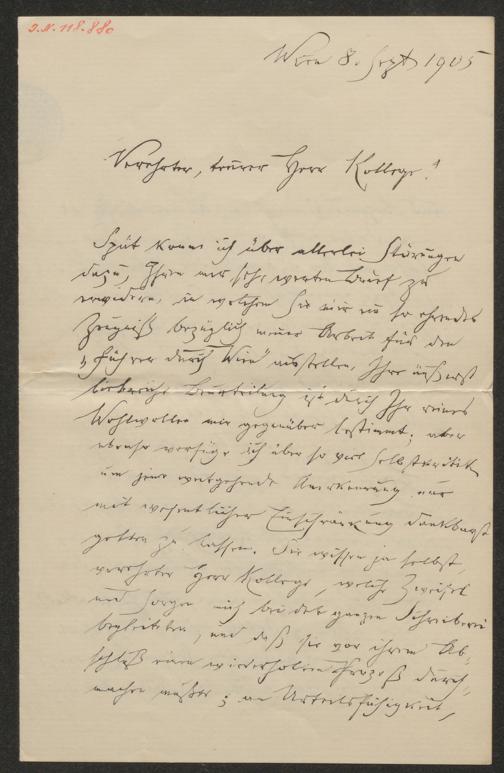 I.N. 118.880
Wien 8. Sept 1905
Verehrter, teurer Herr Kollege!
Spät komm ich über allerlei Störungen
dazu, Ihren mir sehr werten Brief zu
erwidern, in welchem Sie mir ein so ehrendes
Zeugniß bezüglich meiner Arbeit für den
„Führer durch Wien" ausstellen. Ihre äußerst
Beurteilung ist durch Ihr reines
Wohlwollen mir gegenüber bestimmt; aber
ebenso verfüge ich über so viel Selbstkritik
um jene weitgehende Anerkennung nur
mit wesentlicher Einschränkung dankbarst
gelten zu lassen. Sie wissen ja selbst,
verehrter Herr Kollege, welche Zweifel
und Sorgen mich bei der ganzen Schreiberei
begleiteten, und daß sie vor ihrem Ab-
schluß einen wiederholten Prozeß durch-
machen mußte; an Urteilsfähigkeit,